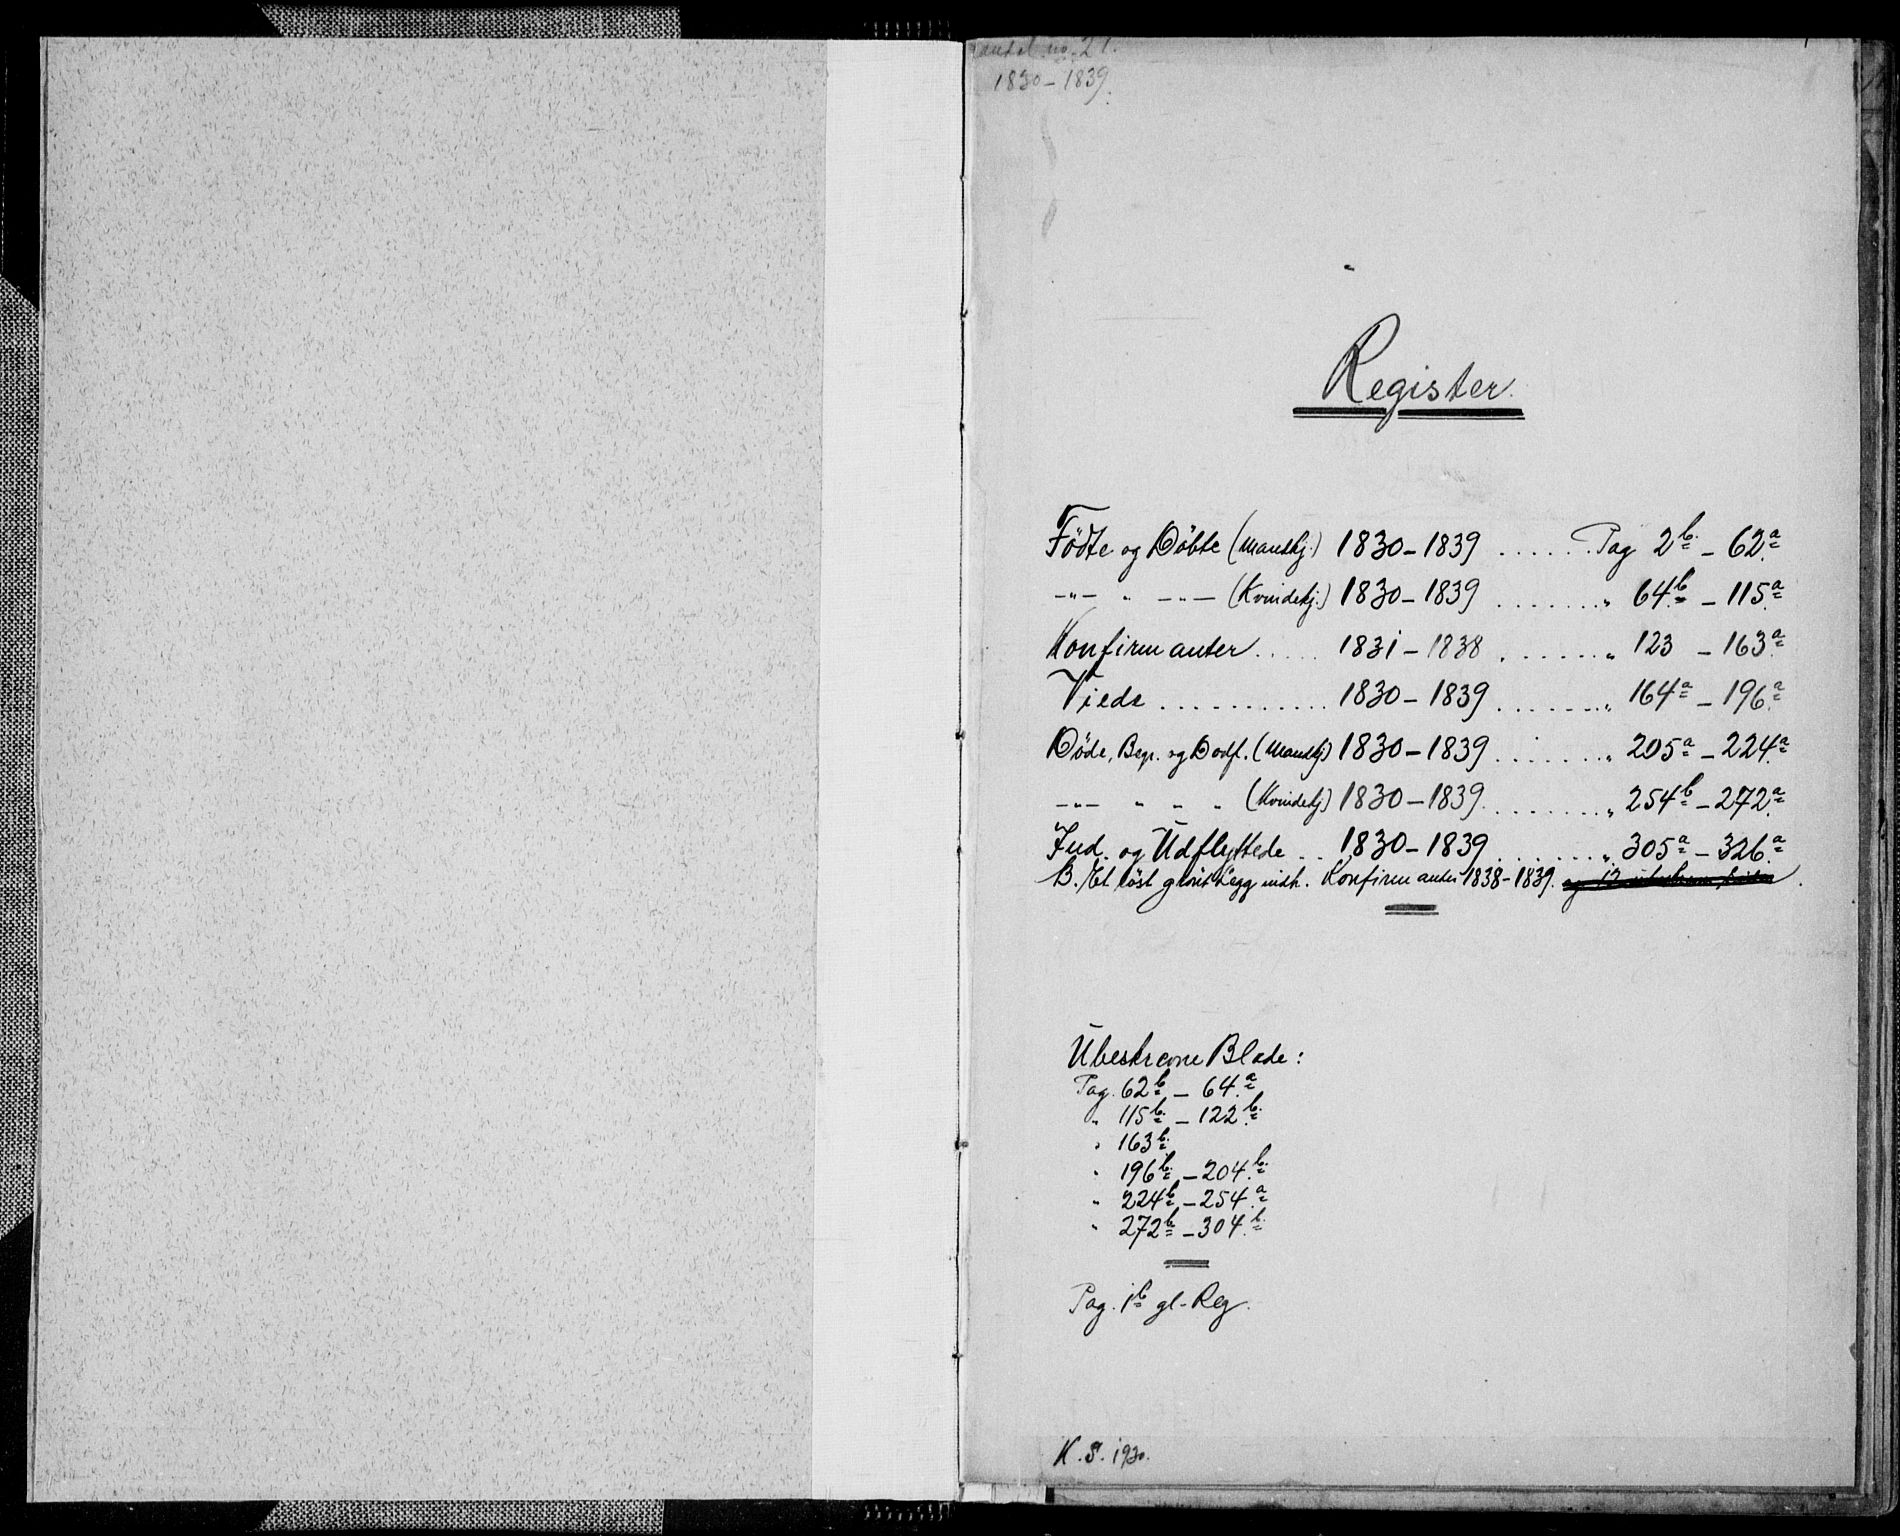 no. 21.
1830-1839.
Register.
Födte og Döbte (Mandkj.) 1830-1839 ...... Pag 2b. - 62a.
-"- " -"- (Kvindekj.) 1830-1839 ....... " 64b. - 115a.
Konfirmanter ..... 1831-1838 ....... " 123 - 163a.
Viede ........... 1830-1839 ....... " 164a - 196a.
Döde, Begr. og Dödf. (Mandkj) 1830-1839 ....... " 205a - 224a.
-"- " " " (Kvindekj) 1830-1839 ....... " 254b - 272a.
Ind. og Udflyttede .. 1830-1839 ....... " 305a - 326a.
B. Et löst Legg indh. Konfirmanter 1838-1839.
Ubeskrevne Blade:
Pag. 62b - 64a.
" 115b. - 122b.
" 163b.
" 196b. - 204b.
" 224b - 254a.
" 272b - 304b.
Pag. 1b gl. Reg.
K.S. 1930.